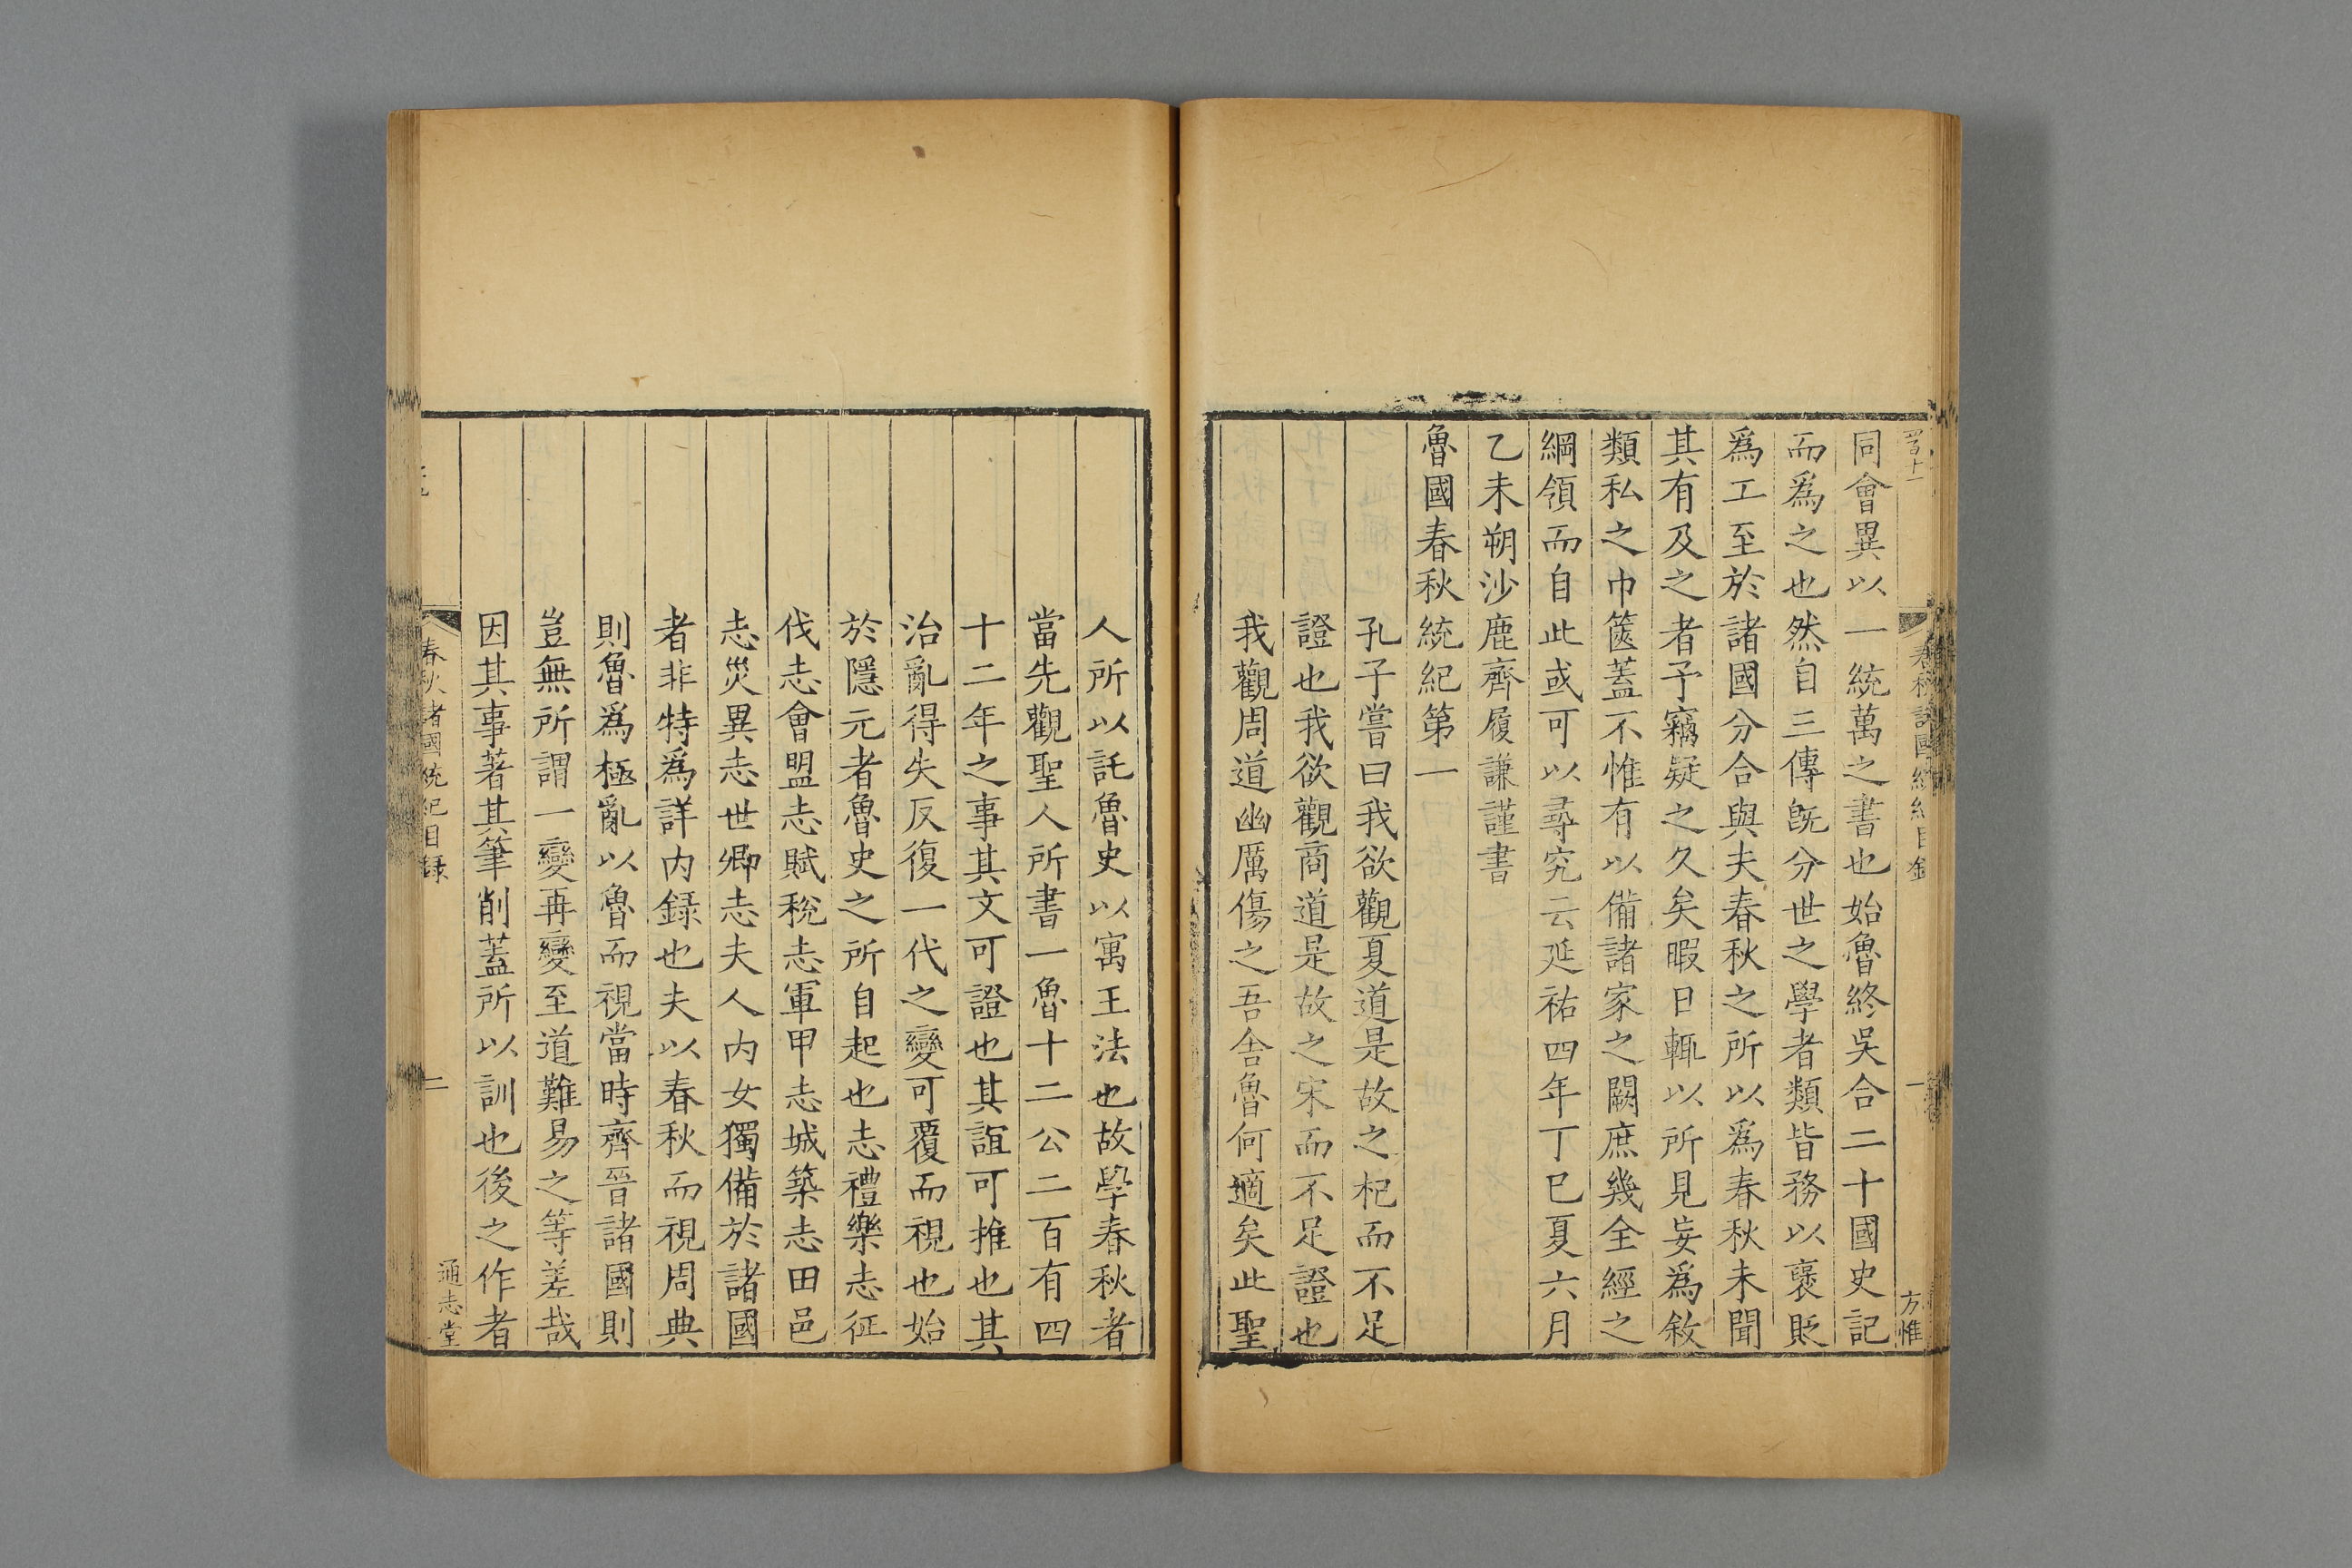 同會異以一統萬之書也始魯終吳合二十國史記
而爲之也然自三傳既分世之學者類皆務以褒貶
爲工至於諸國分合與夫春秋之所以爲春秋未聞
其有及之者予竊疑之久矣暇日輒以所見妄爲敘
類私之巾篋蓋不惟有以備諸家之闕庶幾全經之
綱領而自此或可以尋究云延祐四年丁巳夏六月
乙未朔沙鹿齊履謙謹書
魯國春秋統紀第一
孔子嘗曰我欲觀夏道是故之杞而不足
證也我欲觀商道是故之宋而不足證也
我觀周道幽厲傷之吾舍魯何適矣此聖
人所以託魯史以寓王法也故學春秋者
當先觀聖人所書一魯十二公二百有四
十二年之事其文可證也其誼可推也其
治亂得失反復一代之變可覆而視也始
於隱元者魯史之所自起也志禮樂志征
伐志會盟志賦稅志軍甲志城築志田邑
志災異志世卿志夫人内女獨備於諸國
者非特爲詳内録也夫以春秋而視周典
則魯爲極亂以魯而視當時齊晉諸國則
豈無所謂一變再變至道難易之等差哉
因其事著其筆削蓋所以訓也後之作者
春秋諸國統紀目録
二
通志堂
春秋諸國統紀目録
一
方惟